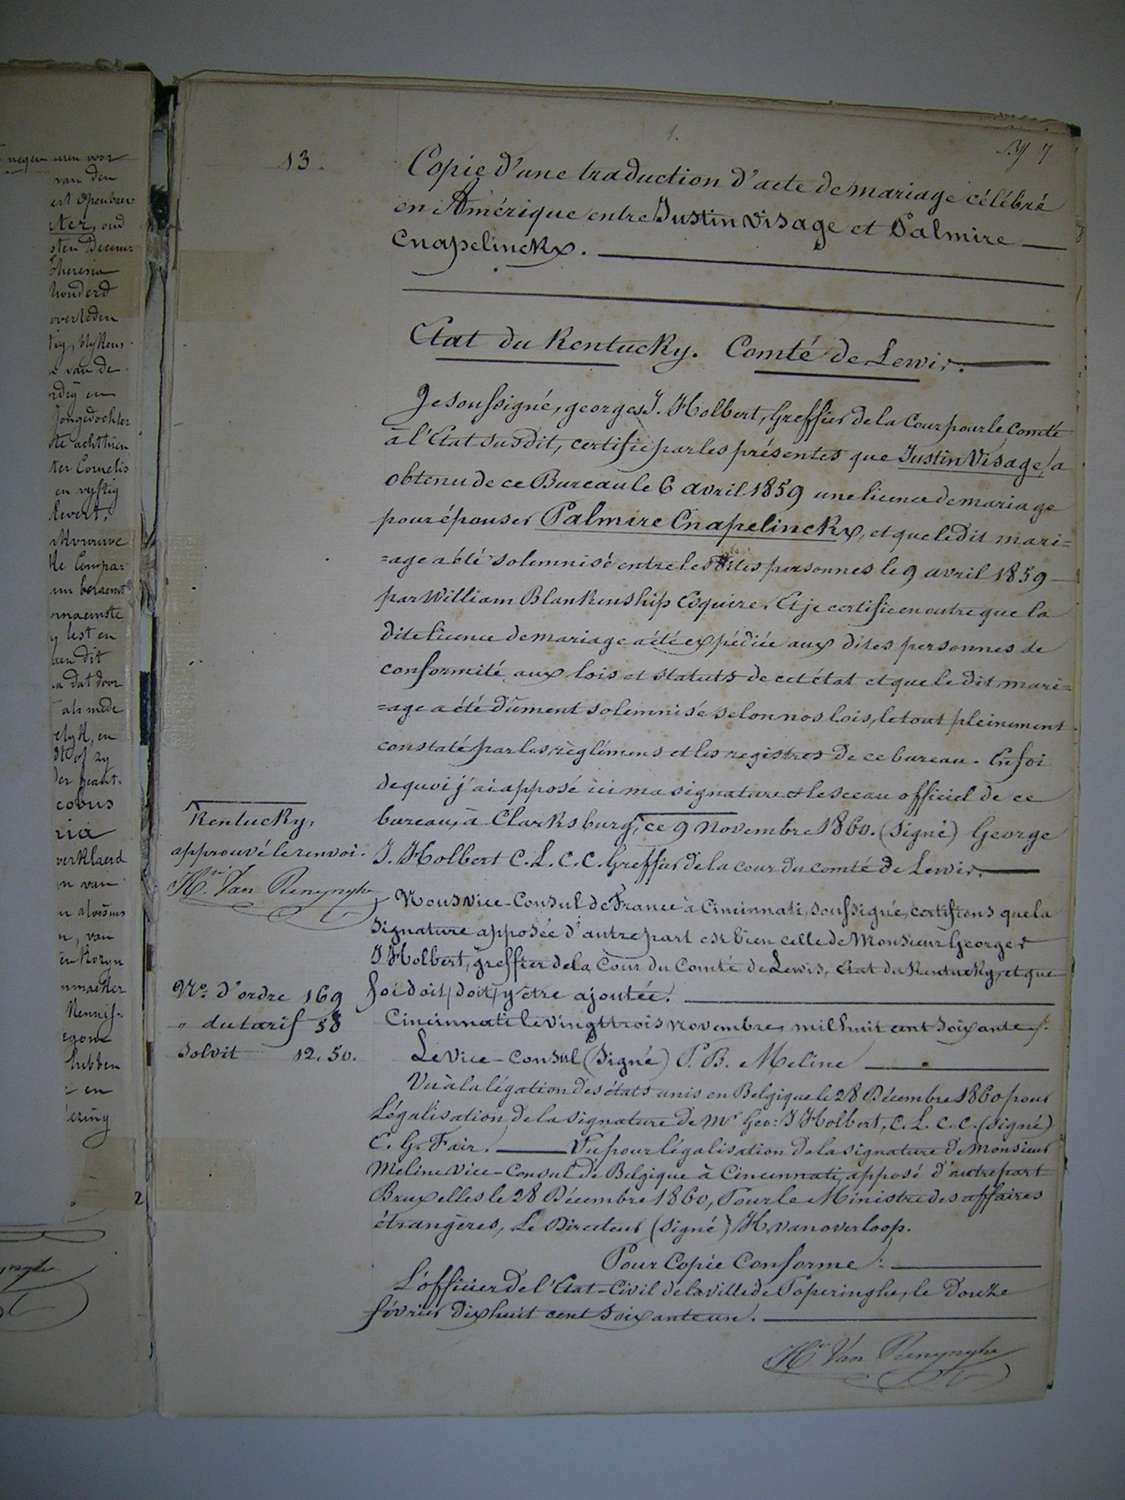 negen uren voor
van den
ert openbaer
ster, oud
sten Decem-
Theresia
honderd
overleden
blykens
van de
en
Jongedochter
ste achttien
ter Cornelis
en vyftig
Compa-
en
aen dit
dat door
als mede
elyk, en
cobus
ria
verklaerd
van
van
hebben
en
2
13.
1.
7
Copie d'une traduction d'acte de mariage célébré
en Amérique entre Justin Visage et Palmire
Cnapelinckx.
Etat du Kentucky. Comté de Lewis.
Je soussigné, georges J. Holbert, Greffier de la Cour pour le Comté
à l'Etat susdit, certifie par les présentes que Justin Visage, a
obtenu de ce Bureau le 6 avril 1859 une licence de mariage
pour épouser Palmire Cnapelinckx, et que le dit mari=
=age a été solemnisé entre les dites personnes le 9 avril 1859
par William Blankenship Esquire. Et je certifie en outre que la
dite licence de mariage a été expédiée aux dites personnes de
conformité aux lois et statuts de cet état et que le dit mari=
=age a été dûment solemnisé selon nos lois, le tout pleinement
constaté par les règlémens et les registres de ce bureau. En foi
de quoi j'ai apposé ici ma signature et le sceau officiel de ce
bureau, à Clarksburg, ce 9 Novembre 1860. (Signé) George
J. Holbert C. L. C. C. Greffier de la cour du comté de Lewis.
Kentucky,
approuvé le renvoi.
Hri Van Renynghe
Nous Vice-Consul de France à Cincinnati, soussigné, certifions que la
signature apposée d'autre part est bien celle de Monsieur Georges
J Holbert, greffier de la Cour du Comté de Lewis, Etat du Kentucky, et que
foi doit, doit, y être ajoutée.
No. d'ordre 169
" du tarif 58
Solvit 12,50.
Cincinnati le vingt trois novembre, mil huit cent soixante.
Le Vice-Consul (Signé) P. B. Meline
Vu à la légation des états unis en Belgique le 28 Décembre 1860 pour
Légalisation de la signature de Mr Geo: J Holbert, C. L. C. C. (signé)
C. G. Fair. Vu pour légalisation de la signature de Monsieur
Meline Vice-Consul de Belgique à Cincinnati, apposé d'autre part
Bruxelles le 28 Décembre 1860, Pour le Ministre des affaires
étrangères, Le Directeur (signé) H. vanoverloop.
Pour Copie Conforme:
L'officier de l'Etat-Civil de la ville de Poperinghe, le Douze
février dixhuit cent soixante un.
Hri Van Renynghe